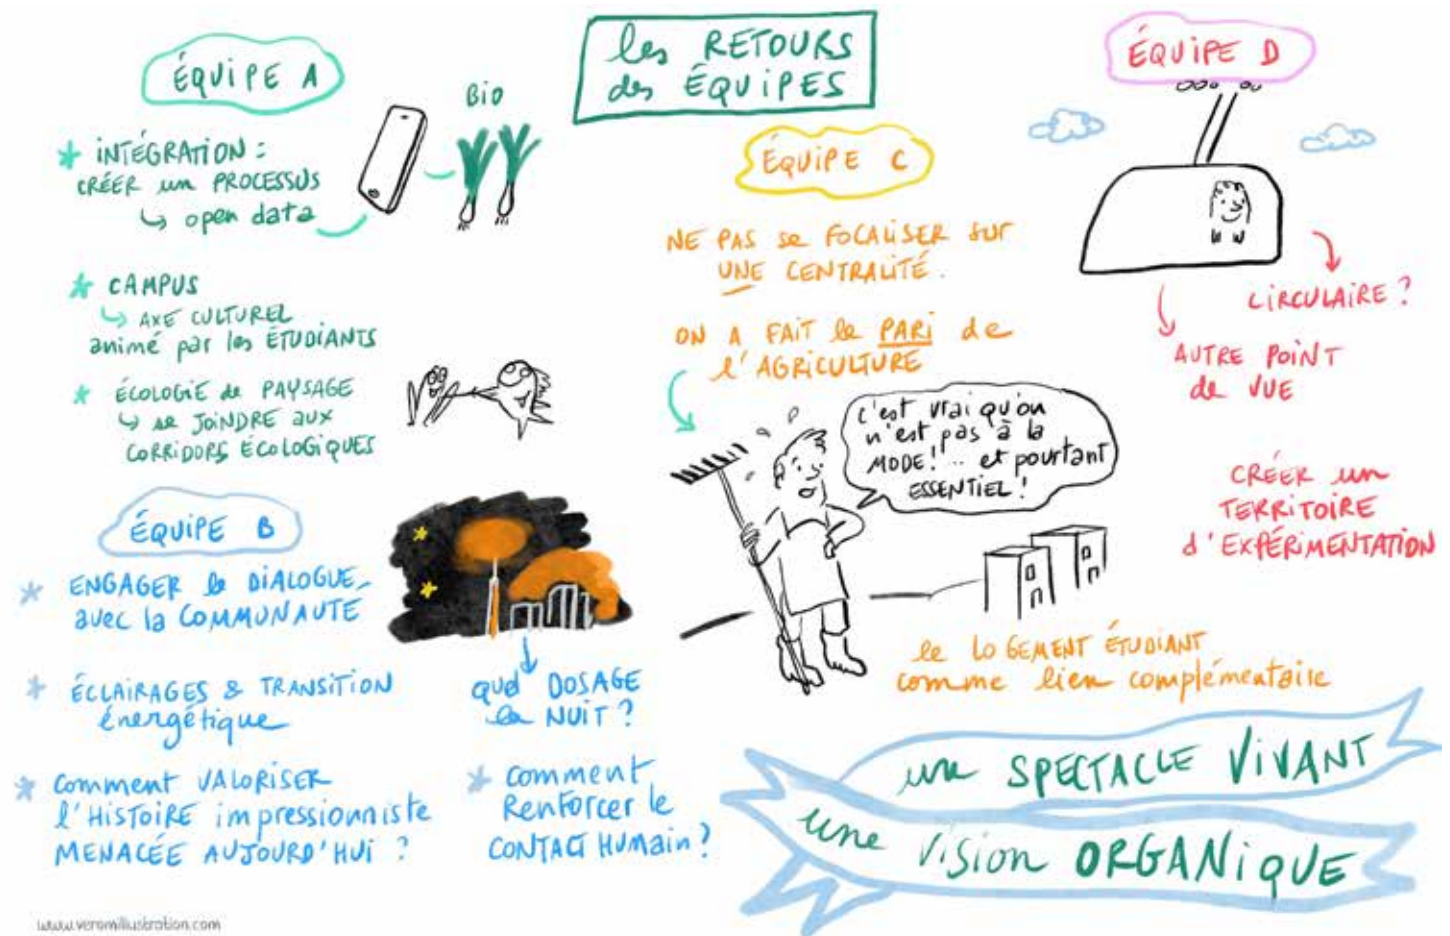 les RETOURS
des ÉQUIPES
ÉQUIPE A
* INTÉGRATION :
CRÉER un PROCESSUS
↳ open data
BIO
* CAMPUS
↳ AXE CULTUREL
animé par les ÉTUDIANTS
* ÉCOLOGIE de PAYSAGE
↳ se JOINDRE AUX
CORRIDORS ÉCOLOGIQUES
ÉQUIPE B
* ENGAGER le DIALOGUE
avec la COMMUNAUTÉ
* ÉCLAIRAGES & TRANSITION
énergétique
quel DOSAGE
la NUIT ?
* Comment VALORISER
l'HISTOIRE impressionniste
MENACÉE AUJOURD'HUI ?
* Comment
Renforcer le
CONTACT HUMAIN ?
ÉQUIPE C
NE PAS se FOCALISER sur
UNE CENTRALITÉ.
ON A FAIT le PARI de
l'AGRICULTURE
c'est vrai qu'on
n'est pas à la
MODE! ... et pourtant
ESSENTIEL !
le LOGEMENT ÉTUDIANT
comme lien complémentaire
ÉQUIPE D
CIRCULAIRE ?
AUTRE POINT
de VUE
CRÉER un
TERRITOIRE
d'EXPÉRIMENTATION
un SPECTACLE VIVANT
une vision ORGANIQUE
www.veromillustration.com